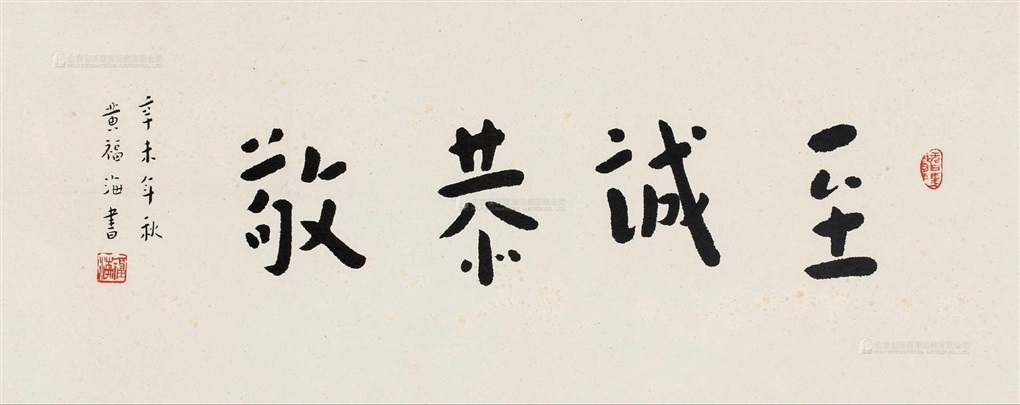 至誠恭敬
辛未年秋
黄福海書